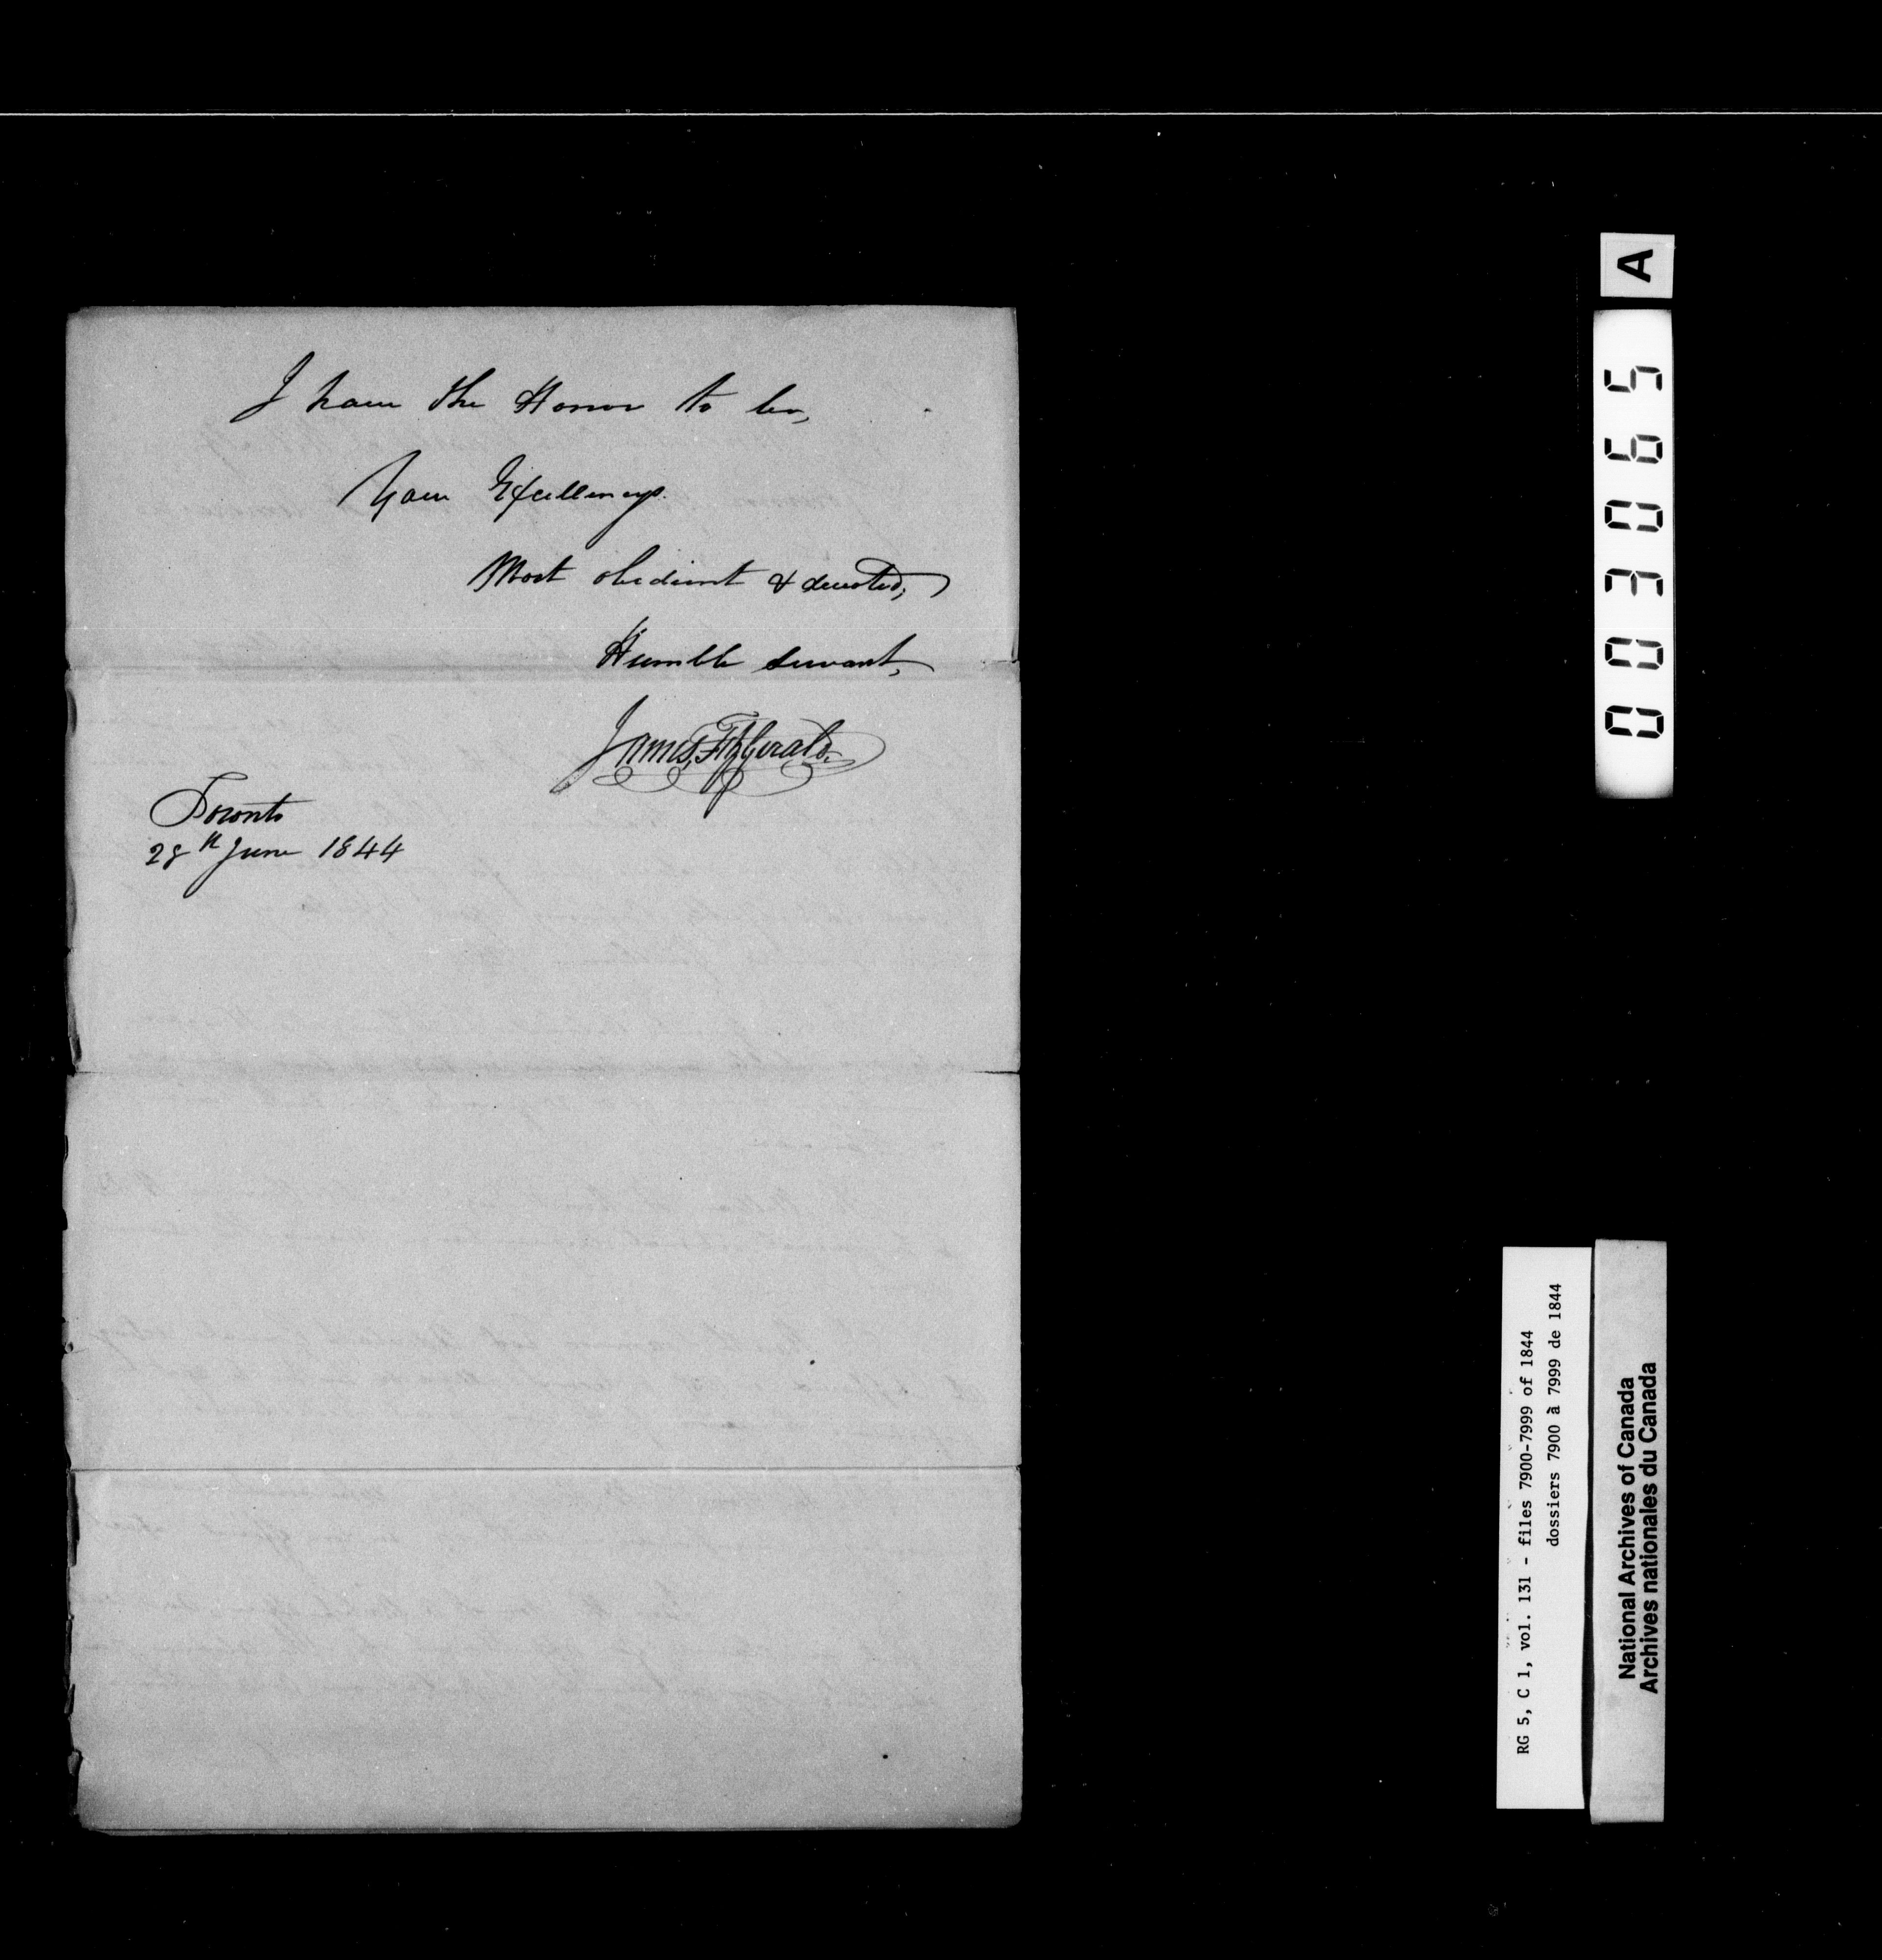 I have the Honor to be,
Your Excellency's
Most obedient & devoted,
Humble servant,
James FitzGerald.
Toronto
28th June 1844
A
003065
RG 5, C 1, vol. 131 - files 7900-7999 of 1844
dossiers 7900 à 7999 de 1844
National Archives of Canada
Archives nationales du Canada